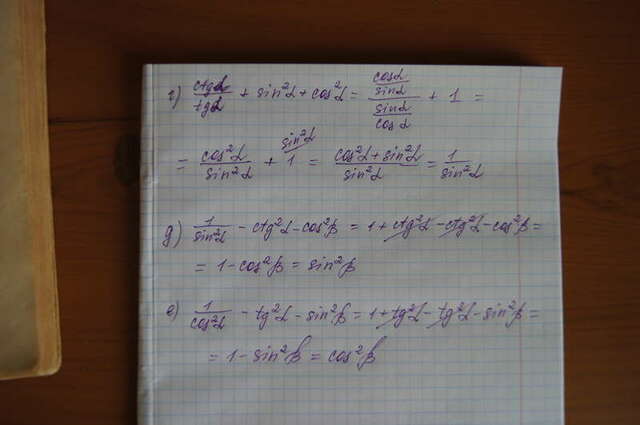 г) ctgα/tgα + sin²α + cos²α = (cosα/sinα)/(sinα/cosα) + 1 =
= cos²α/sin²α + 1 (sin²α = (cos²α + sin²α)/sin²α = 1/sin²α
д) 1/sin²α - ctg²α - cos²β = 1 + ctg²α - ctg²α - cos²β =
= 1 - cos²β = sin²β
е) 1/cos²α - tg²α - sin²β = 1 + tg²α - tg²α - sin²β =
= 1 - sin²β = cos²β